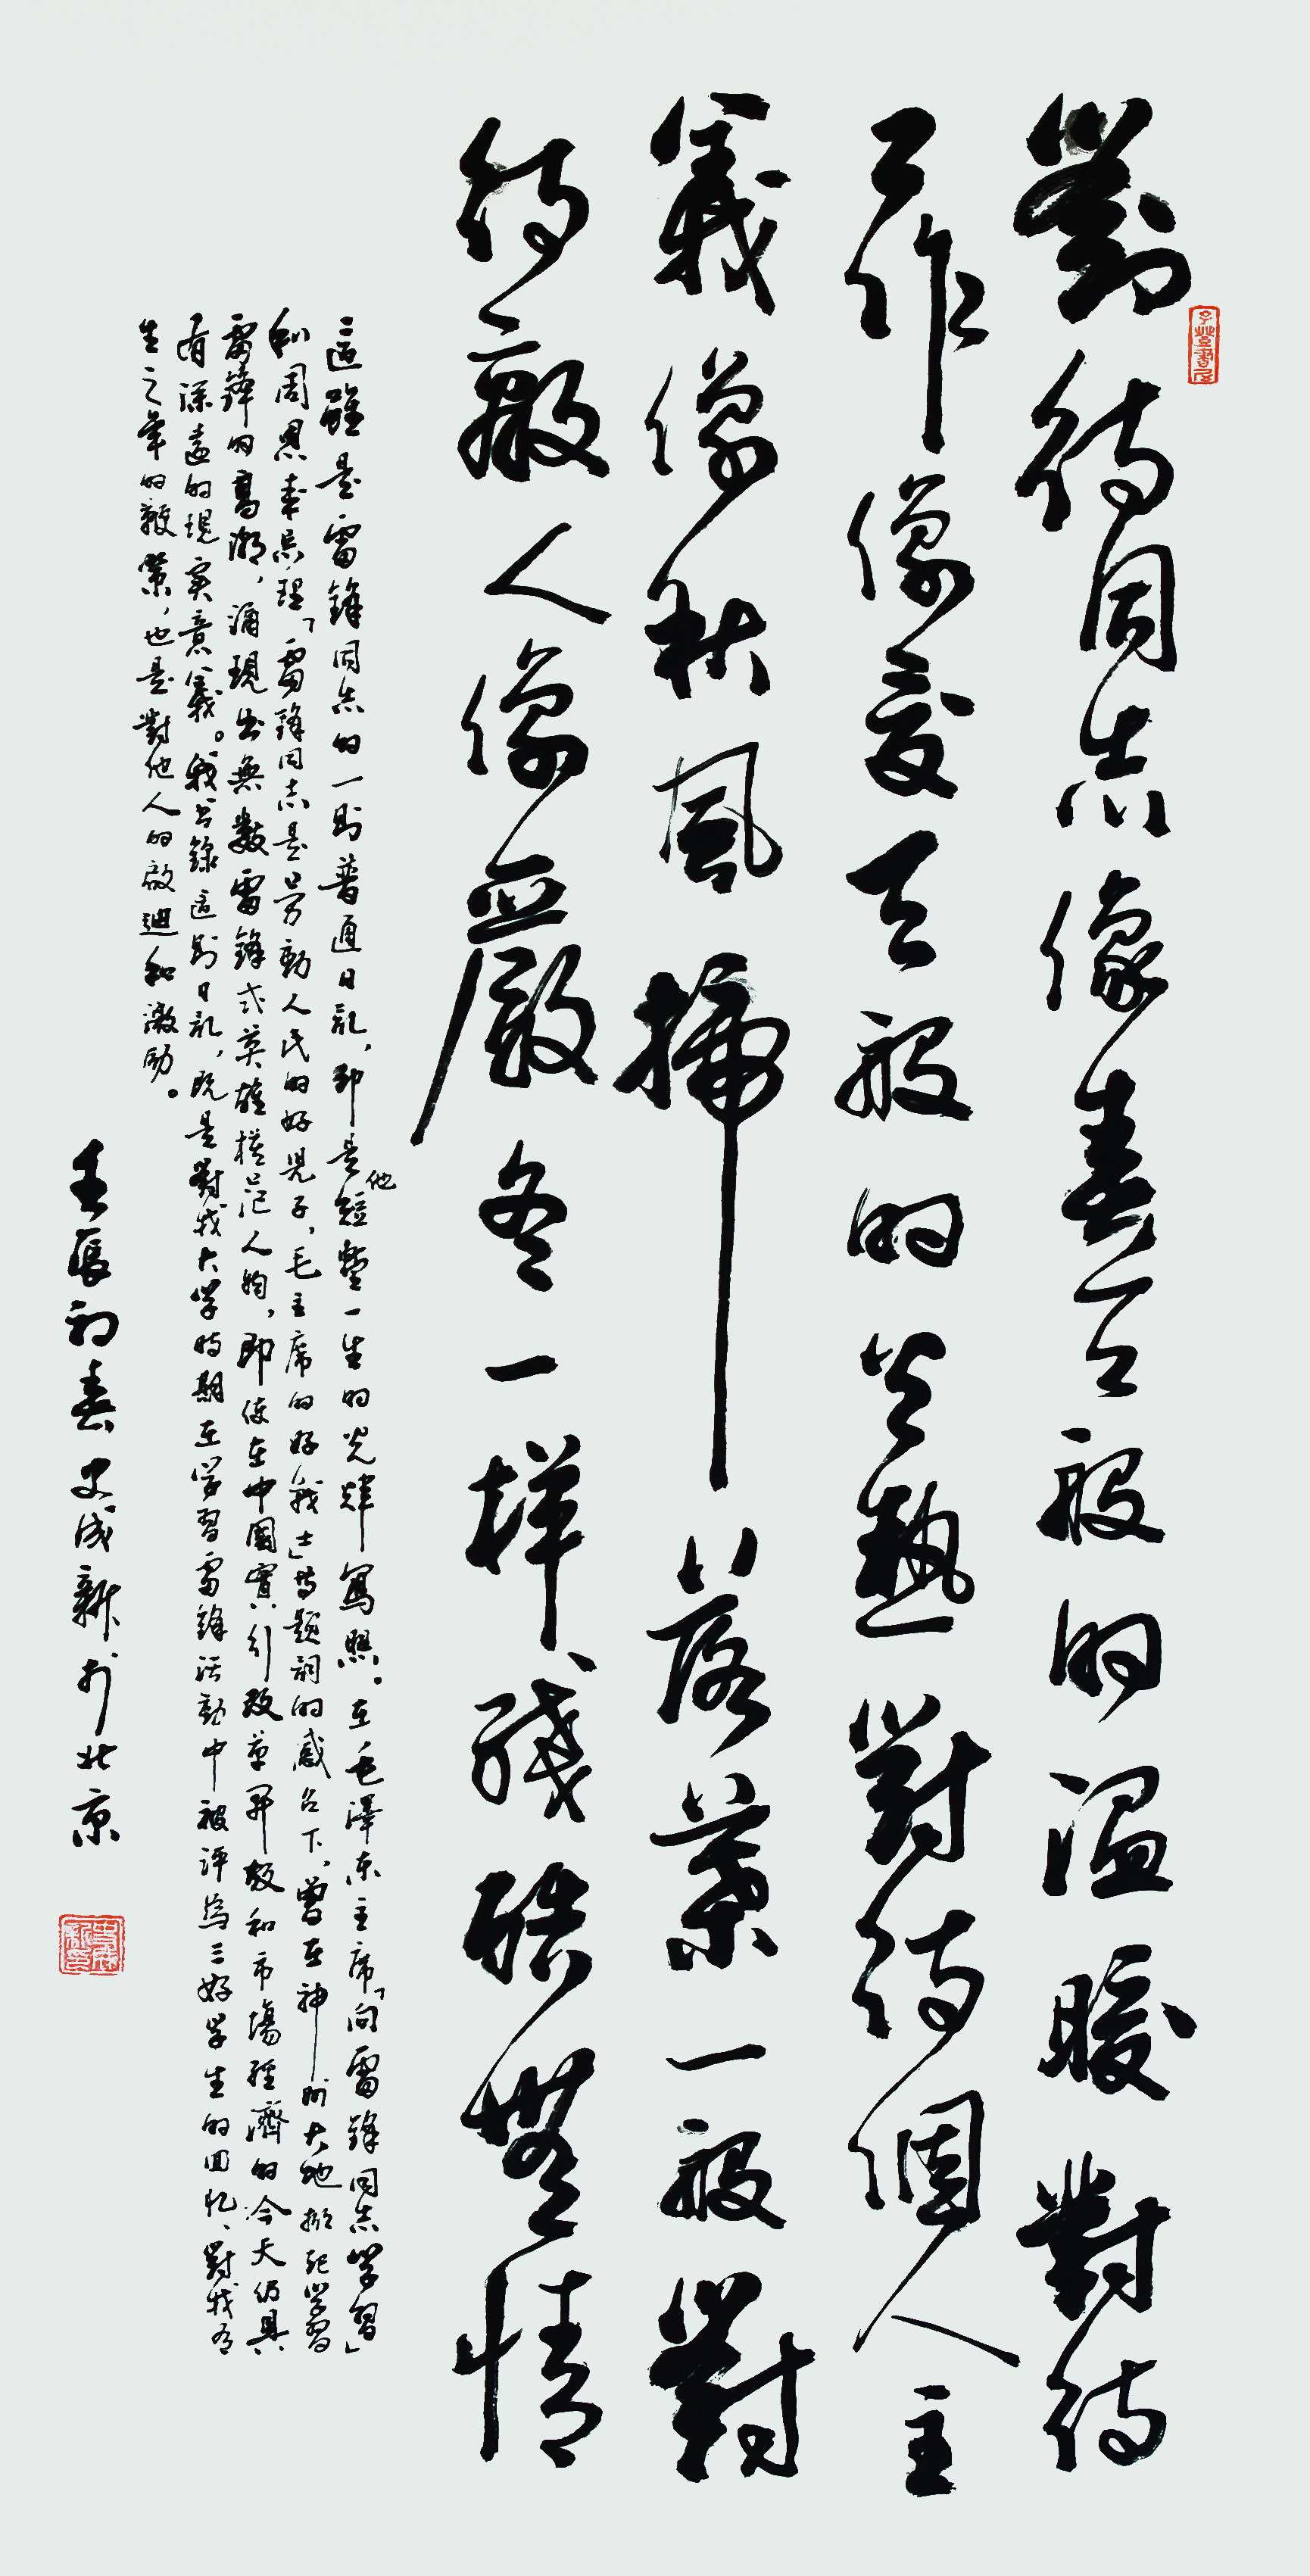 對待同志像春天般的温暖對待
工作像夏天般的火熱對待個人主
義像秋風掃落葉一般對
待敵人像嚴冬一样殘酷無情
這雖是雷鋒同志的一則普通日記，却是他短暫一生的光輝寫照。在毛澤東主席「向雷鋒同志學習」
和周恩來總理「雷鋒同志是勞動人民的好兒子，毛主席的好戰士」等題詞的感召下，曾在神州大地掀起學習
雷鋒的高潮，涌現出無數雷鋒式英雄模范人物，即使在中國實行改革開放和市場經濟的今天仍具
有深遠的現实意義。我書錄這則日記，既是對我大学時期在学習雷鋒活動中被评為三好学生的回忆、對我有
生之年的鞭策，也是對他人的啟迪和激励。
壬辰初春史成新於北京